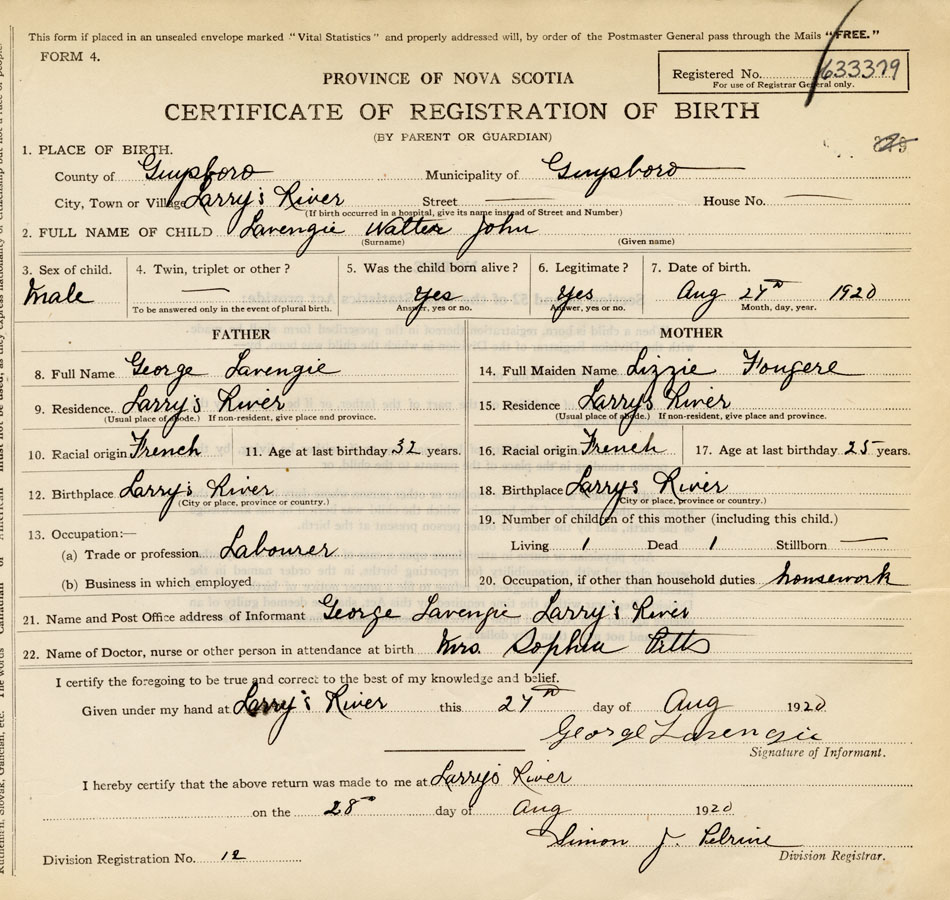 This form if placed in an unsealed envelope marked "Vital Statistics" and properly addressed will, by order of the Postmaster General pass through the Mails "FREE."
FORM 4.
PROVINCE OF NOVA SCOTIA
Registered No. 633379
For use of Registrar General only.
CERTIFICATE OF REGISTRATION OF BIRTH
(BY PARENT OR GUARDIAN)
1. PLACE OF BIRTH.
County of Guysboro Municipality of Guysboro
City, Town or Village Larry's River Street House No.
(If birth occurred in a hospital, give its name instead of Street and Number)
2. FULL NAME OF CHILD Lavengie Walter John
(Surname) (Given name)
3. Sex of child. 4. Twin, triplet or other? 5. Was the child born alive? 6. Legitimate? 7. Date of birth.
Male — Yes Yes Aug 27th 1920
To be answered only in the event of plural birth. Answer, yes or no. Answer, yes or no. Month, day, year.
FATHER MOTHER
8. Full Name George Lavengie 14. Full Maiden Name Lizzie Fougere
9. Residence. Larry's River 15. Residence Larry's River
(Usual place of abode.) If non-resident, give place and province. (Usual place of abode.) If non-resident, give place and province.
10. Racial origin French 11. Age at last birthday 32 years. 16. Racial origin French 17. Age at last birthday 25 years.
12. Birthplace Larry's River 18. Birthplace Larrys River
(City or place, province or country.) (City or place, province or country.)
13. Occupation:— 19. Number of children of this mother (including this child.)
(a) Trade or profession Labourer Living 1 Dead 1 Stillborn —
(b) Business in which employed 20. Occupation, if other than household duties housework
21. Name and Post Office address of Informant George Lavengie Larry's River
22. Name of Doctor, nurse or other person in attendance at birth Mrs. Sophia Pitts
I certify the foregoing to be true and correct to the best of my knowledge and belief.
Given under my hand at Larry's River this 27th day of Aug 1920
George Lavengie
Signature of Informant.
I hereby certify that the above return was made to me at Larrys River
on the 28th day of Aug 1920
Simon J. Pelrine
Division Registration No. 12 Division Registrar.